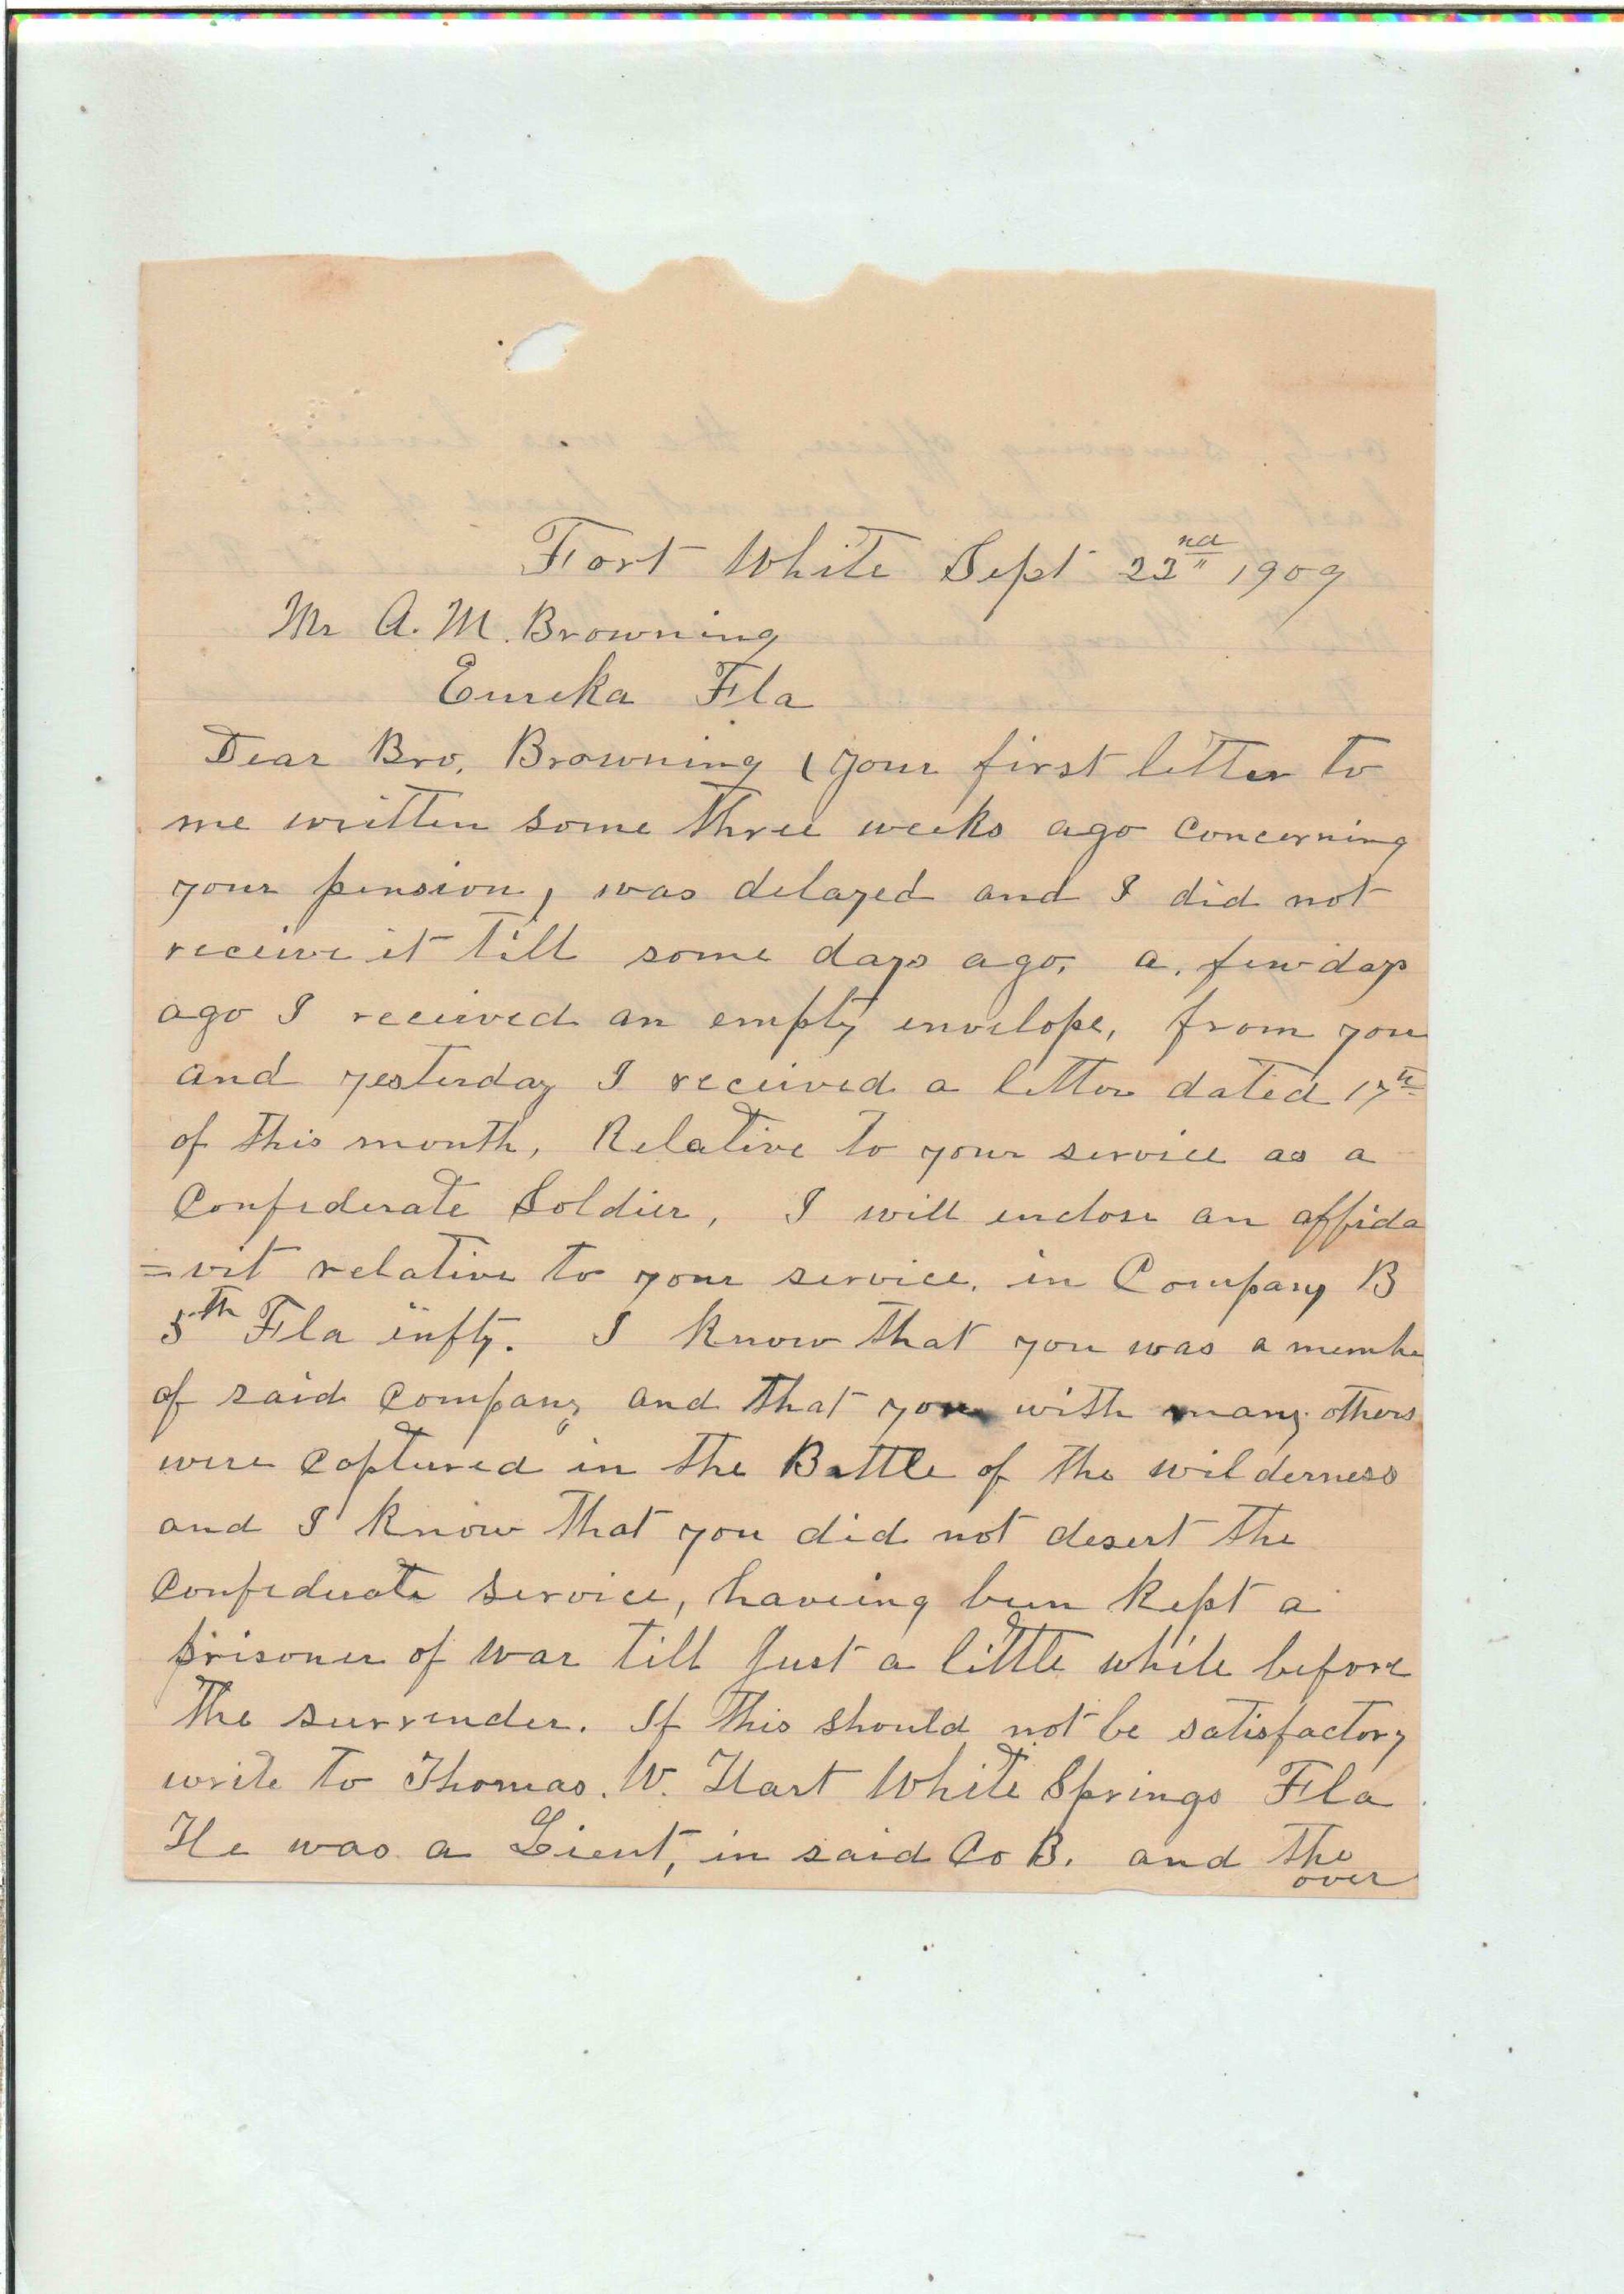 Fort White Sept 22nd 1909
Mr A. M. Browning
Eureka Fla
Dear Bro. Browning (your first letter to
me written some three weeks ago concerning
your pension, was delayed and I did not
receive it till some days ago. a. few days
ago I received an empty envelope, from you
and yesterday I received a letter dated 17th
of this month, Relative to your service as a
Confederate Soldier, I will enclose an affida
=vit relative to your service, in Company B
5th Fla infty. I know that you was a membe
of said Company and that you with many others
were captured in the Battle of the wilderness
and I know that you did not desert the
Confederate Service, haveing been kept a
prisoner of war till Just a little while before
the surrender. If this should not be satisfactory
write to Thomas. W. Hart White Springs Fla
He was a Lieut, in said Co B. and the
over